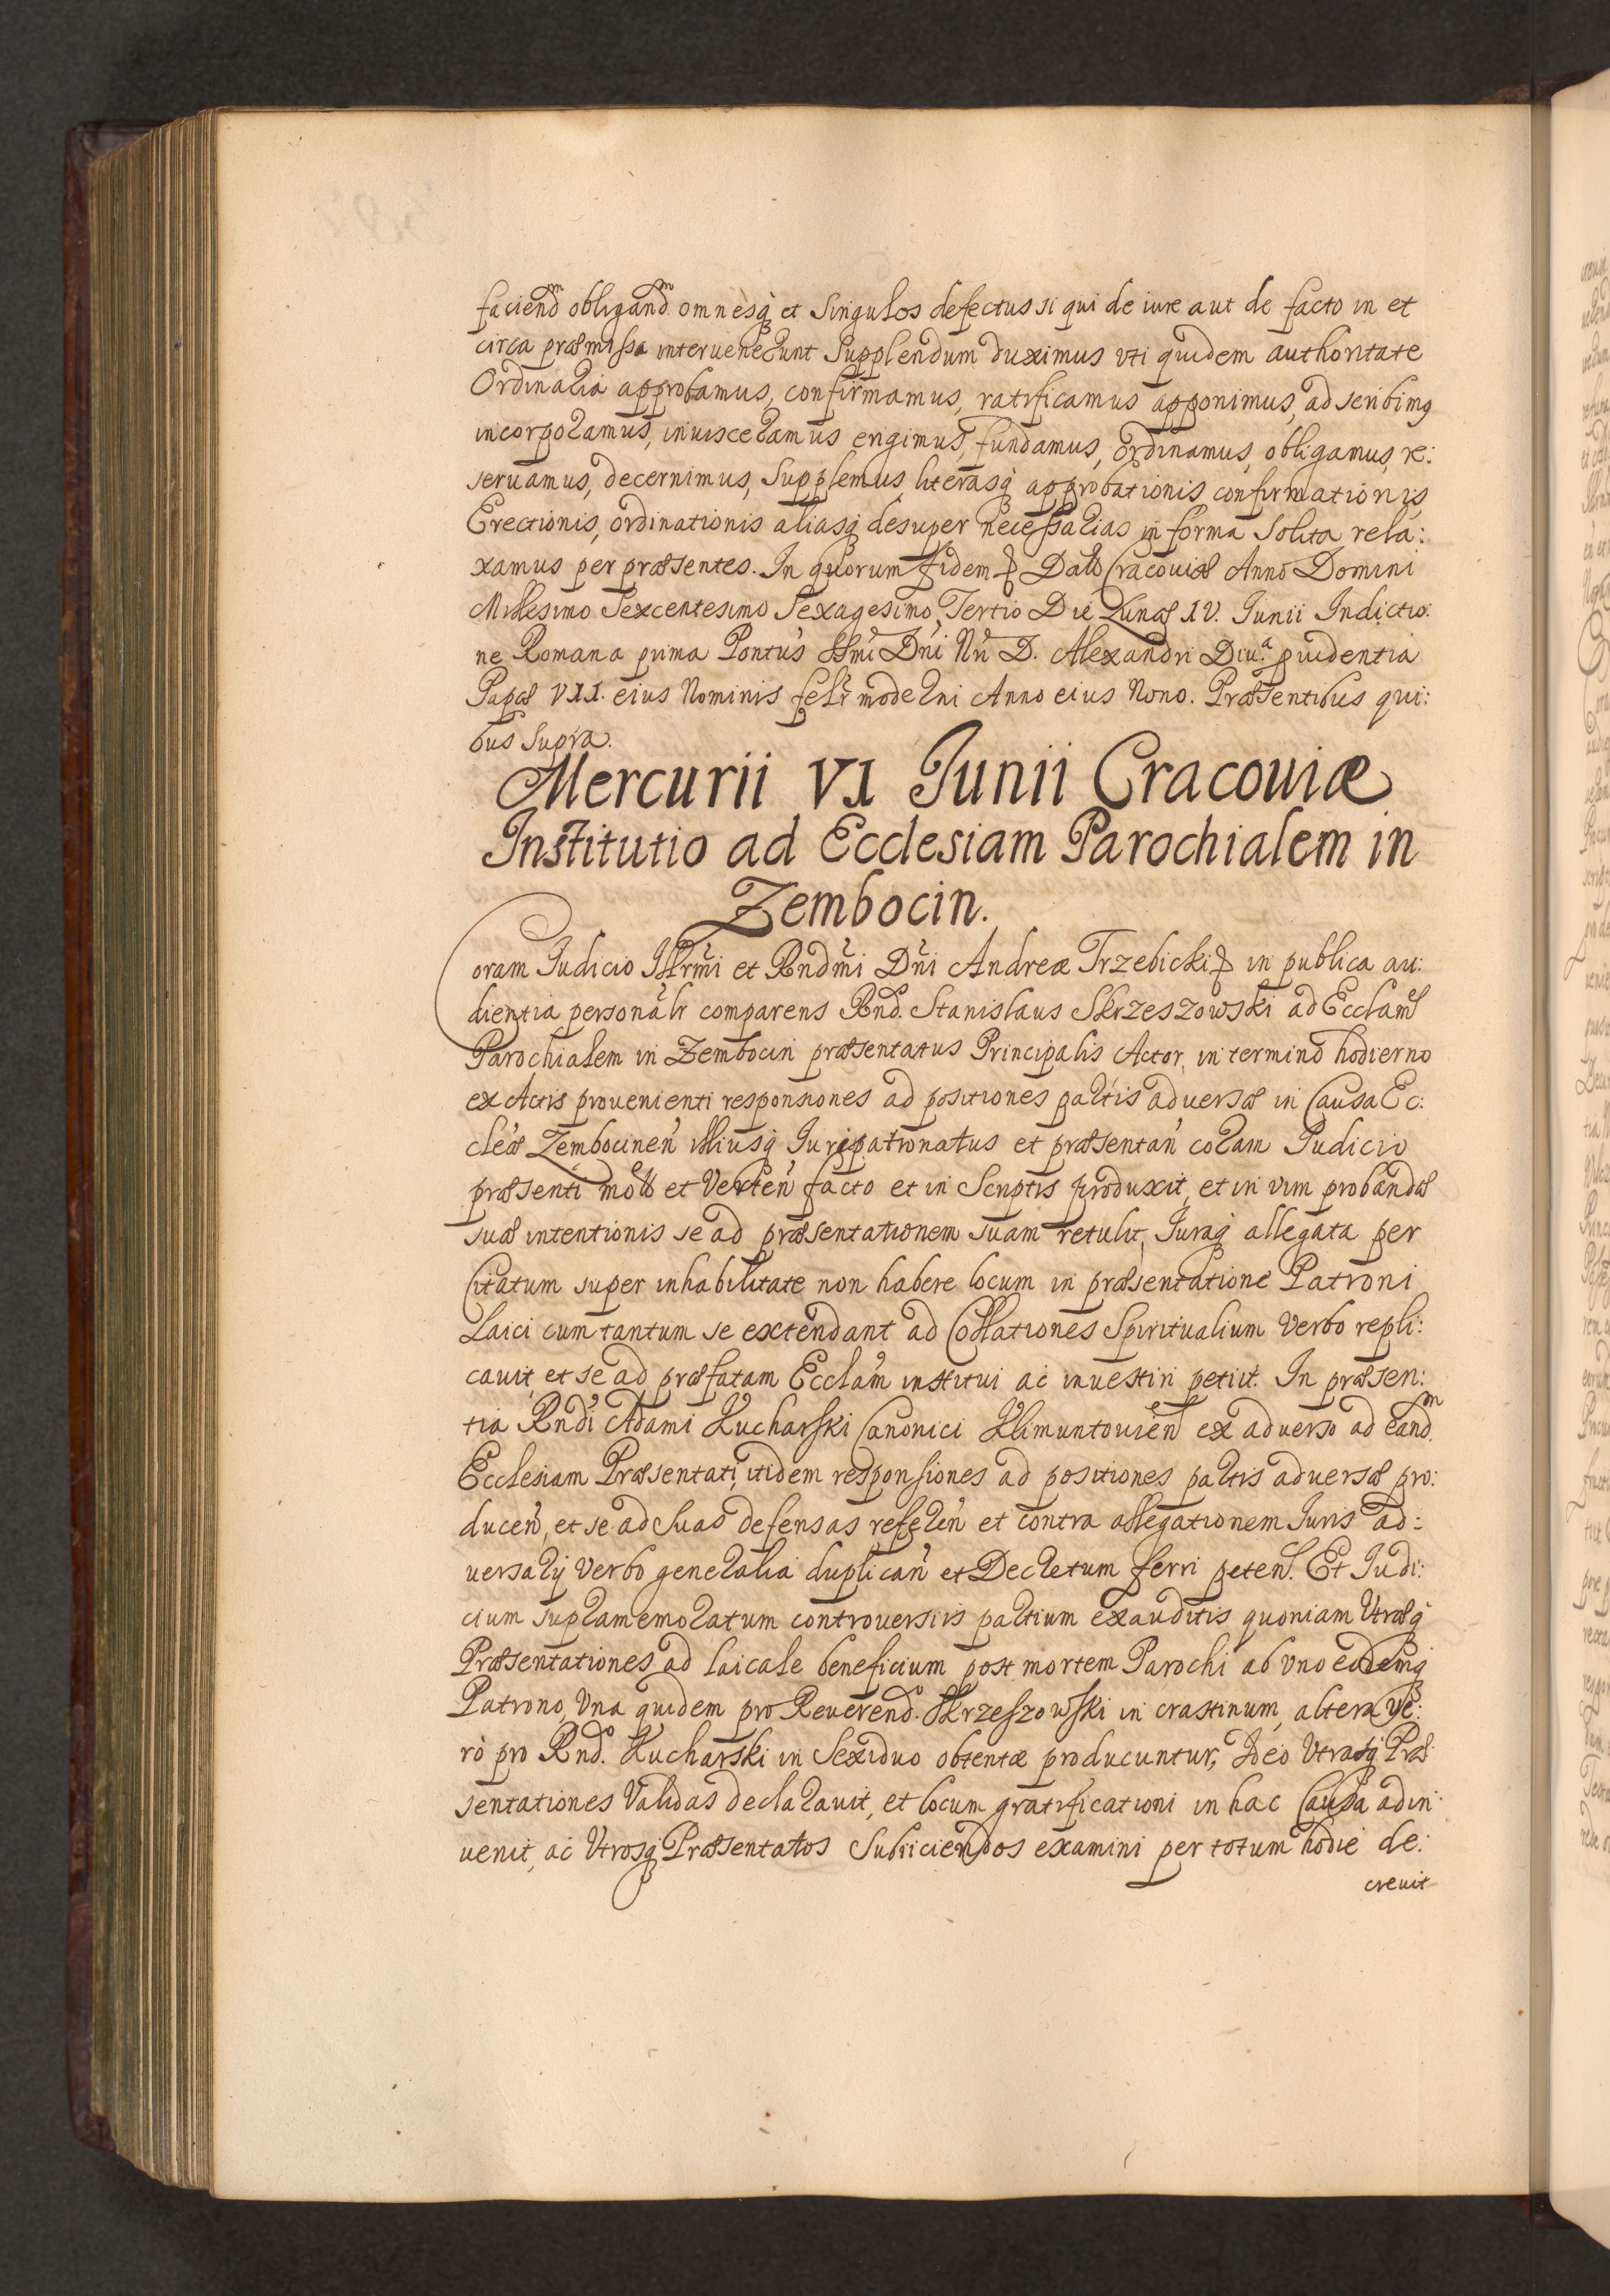 faciend̄ obligand̄ omnesq̢ et singulos defectus si qui de iure aut de facto in et
circa præmissa interuenerunt Supplendum duximus vti quidem authoritate
Ordinaria approbamus, confirmamus, ratificamus apponimus, adscribimq
incorporamus, inuisceramus erigimus, fundamus, ordinamus, obligamus, re:
seruamus, decernimus, Supplemus literasq̢ approbationis confirmationis
Erectionis, ordinationis aliasq̢ desuper necessarias in forma Solita rela:
xamus per præsentes. In quorum fidem Datt Cracouiæ Anno Domini
Millesimo Sexcentesimo Sexagesimo Tertio Die Lunæ IV. Iunii Indictio:
ne Romana prima Pontus SSmi Dni Nri D. Alexandri Diua puidentia
Papæ VII. eius Nominis felr moderni Anno eius Nono. Præsentibus qui:
bus supra.
Mercurii VI Junii Cracouiæ
Institutio ad Ecclesiam Parochialem in
Zembocin.
Coram Iudicio Illrmi et Rndmi Dni Andreæ Trzebicki in publica au:
dientia personalr comparens Rnd. Stanislaus Skrzeszowski ad Ecclam
Parochialem in Zembocin præsentatus Principalis Actor, in termino hodierno
ex Actis provenienti responsiones ad positiones partis aduersæ in Causa Ec:
cleæ Zembocinen̄ illiusq̢ Iurispatronatus et præsentan̄ coram Iudicio
præsenti mott et Verten̄ facto et in Scriptis produxit, et in vim probandæ
suæ intentionis se ad præsentationem suam retulit, Iuraq̢ allegata per
Citatum super inhabilitate non habere locum in præsentatione Patroni
Laici cum tantum se extendant ad Collationes Spiritualium Verbo repli:
cauit, et se ad præfatam Ecclam institui ac inuestiri petiit. In præsen:
tia Rndi Adami Kucharski Canonici Klimuntouien ex aduerso ad eandm
Ecclesiam Præsentati, itidem responsiones ad positiones partis aduersæ pro:
ducen̄, et se ad Suas defensas referen̄ et contra allegationem Iuris ad:
uersarij Verbo generalia duplican̄ et Decretum ferri peten. Et Iudi:
cium supramemoratum controuersiis partium exauditis quoniam Utræq̢
Præsentationes ad laicale beneficium post mortem Parochi ab vno eodemq̢
Patrono, Vna quidem pro Reuerend. Skrzeszowski in crastinum, altera ve:
rò pro Rnd. Kucharski in Sexiduo obtentæ producuntur, Ideo Utrasq̢ Præ:
sentationes Validas declarauit, et locum gratificationi in hac Causa adin:
uenit, ac Utrosq̢ Præsentatos Subiiciendos examini per totum hodie de:
creuit